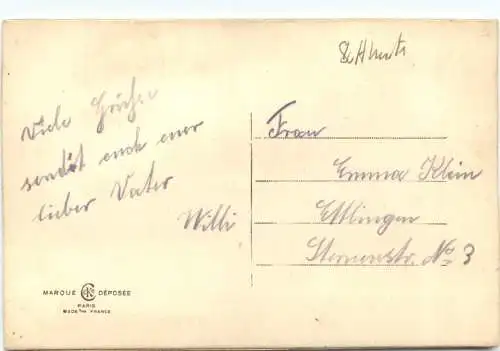 Viele Grüße
sendet euch euer
lieber Vater
Willi
Frau
Emma Klein
Ettlingen
Sternenstr. No 3
MARQUE DÉPOSÉE
PARIS
MADE IN FRANCE